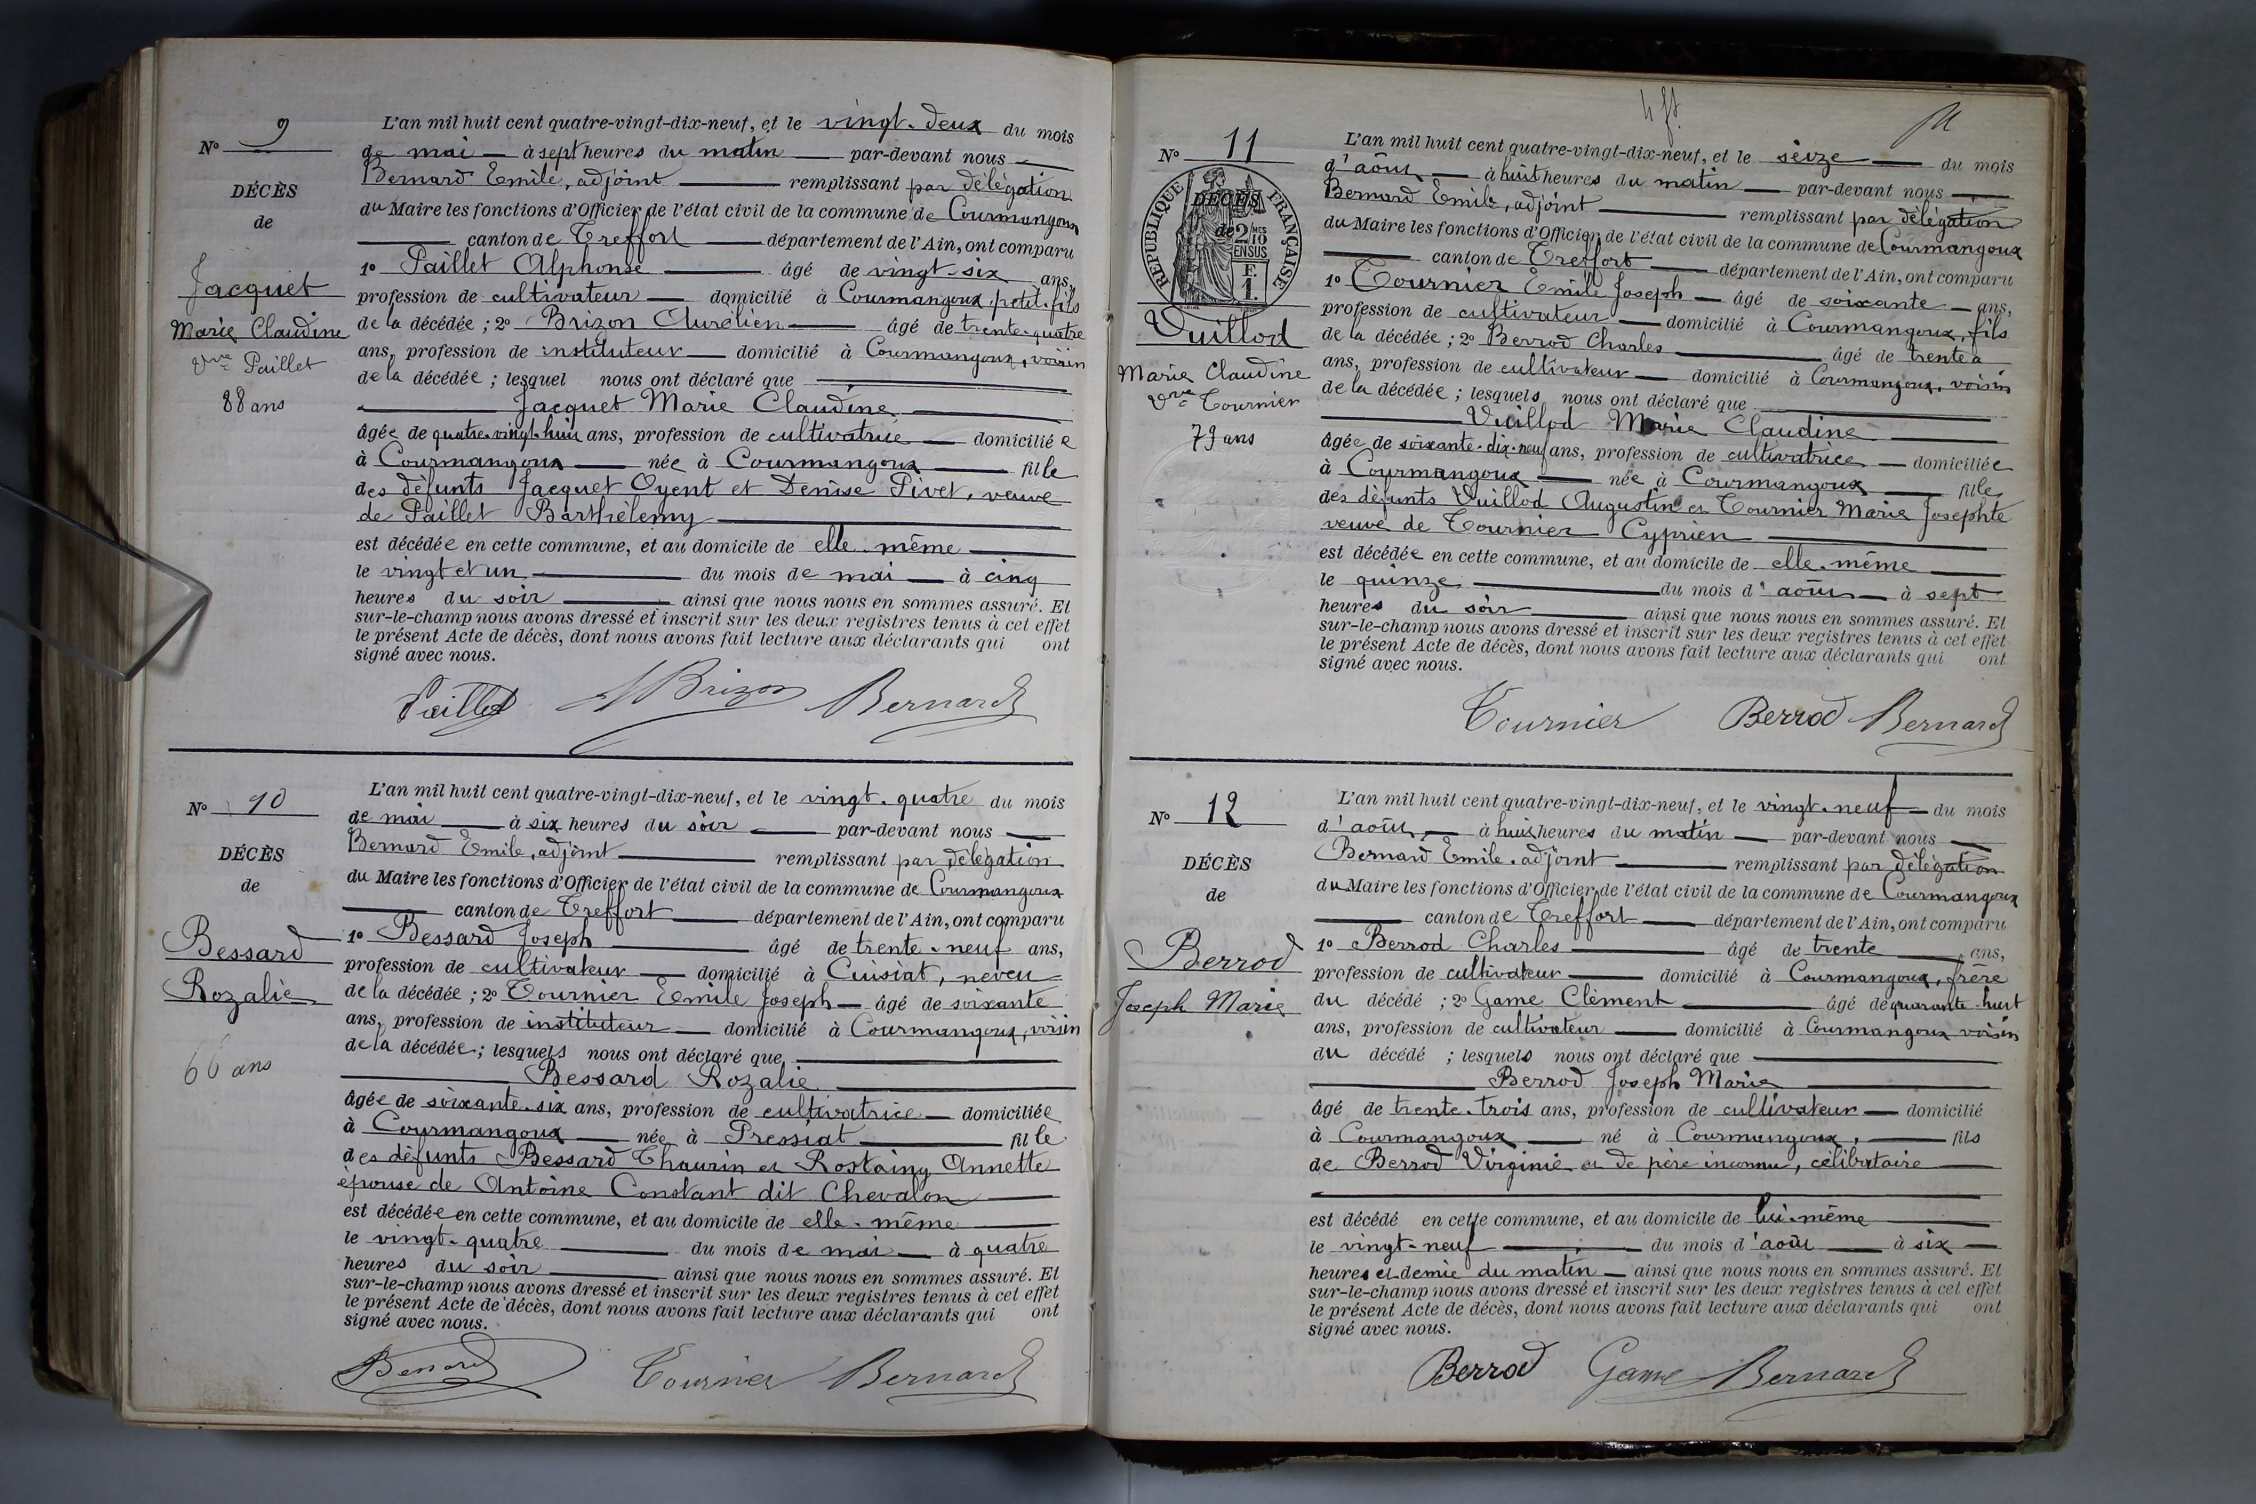 N° 9
DÉCÈS
de
Jacquet
Marie Claudine
Vve Paillet
88 ans
L'an mil huit cent quatre-vingt-dix-neuf, et le vingt-deux du mois
de mai à sept heures du matin par-devant nous
Bernard Emile, adjoint remplissant par délégation
du Maire les fonctions d'Officier de l'état civil de la commune de Courmangoux
canton de Treffort département de l'Ain, ont comparu
1° Paillet Alphonse âgé de vingt-six ans,
profession de cultivateur domicilié à Courmangoux, petit-fils
de la décédée ; 2° Brizon Aurélien âgé de trente-quatre
ans, profession de instituteur domicilié à Courmangoux, voisin
de la décédée ; lesquel nous ont déclaré que
Jacquet Marie Claudine
âgée de quatre-vingt-huit ans, profession de cultivatrice domiciliée
à Courmangoux née à Courmangoux fille
des défunts Jacquet Oyent et Denise Pivet, veuve
de Paillet Barthélemy
est décédée en cette commune, et au domicile de elle-même
le vingt et un du mois de mai à cinq
heures du soir ainsi que nous nous en sommes assuré. Et
sur-le-champ nous avons dressé et inscrit sur les deux registres tenus à cet effet
le présent Acte de décès, dont nous avons fait lecture aux déclarants qui ont
signé avec nous.
Paillet Brizon Bernard
N° 10
DÉCÈS
de
Bessard
Rozalie
66 ans
L'an mil huit cent quatre-vingt-dix-neuf, et le vingt-quatre du mois
de mai à six heures du soir par-devant nous
Bernard Emile, adjoint remplissant par délégation
du Maire les fonctions d'Officier de l'état civil de la commune de Courmangoux
canton de Treffort département de l'Ain, ont comparu
1° Bessard Joseph âgé de trente-neuf ans,
profession de cultivateur domicilié à Cuisiat, neveu
de la décédée ; 2° Tournier Emile Joseph âgé de soixante
ans, profession de instituteur domicilié à Courmangoux, voisin
de la décédée ; lesquels nous ont déclaré que
Bessard Rozalie
âgée de soixante-six ans, profession de cultivatrice domiciliée
à Courmangoux née à Pressiat fille
des défunts Bessard Thaurin et Rostaing Annette
épouse de Antoine Constant dit Chevalon
est décédée en cette commune, et au domicile de elle-même
le vingt-quatre du mois de mai à quatre
heures du soir ainsi que nous nous en sommes assuré. Et
sur-le-champ nous avons dressé et inscrit sur les deux registres tenus à cet effet
le présent Acte de décès, dont nous avons fait lecture aux déclarants qui ont
signé avec nous.
Bessard Tournier Bernard
N° 11
RÉPUBLIQUE FRANÇAISE
DÉCÈS
de
2/10 MES
EN SUS
F.
1.
Vuillod
Marie Claudine
Vve Tournier
79 ans
L'an mil huit cent quatre-vingt-dix-neuf, et le seize du mois
d'août à huit heures du matin par-devant nous
Bernard Emile, adjoint remplissant par délégation
du Maire les fonctions d'Officier de l'état civil de la commune de Courmangoux
canton de Treffort département de l'Ain, ont comparu
1° Tournier Emile Joseph âgé de soixante ans,
profession de cultivateur domicilié à Courmangoux, fils
de la décédée ; 2° Berrod Charles âgé de trente
ans, profession de cultivateur domicilié à Courmangoux, voisin
de la décédée ; lesquels nous ont déclaré que
Vuillod Marie Claudine
âgée de soixante-dix-neuf ans, profession de cultivatrice domiciliée
à Courmangoux née à Courmangoux fille
des défunts Vuillod Augustin et Tournier Marie Josephte
veuve de Tournier Cyprien
est décédée en cette commune, et au domicile de elle-même
le quinze du mois d'août à sept
heures du soir ainsi que nous nous en sommes assuré. Et
sur-le-champ nous avons dressé et inscrit sur les deux registres tenus à cet effet
le présent Acte de décès, dont nous avons fait lecture aux déclarants qui ont
signé avec nous.
Tournier Berrod Bernard
N° 12
DÉCÈS
de
Berrod
Joseph Marie
L'an mil huit cent quatre-vingt-dix-neuf, et le vingt-neuf du mois
d'août, à huit heures du matin par-devant nous
Bernard Emile, adjoint remplissant par délégation
du Maire les fonctions d'Officier de l'état civil de la commune de Courmangoux
canton de Treffort département de l'Ain, ont comparu
1° Berrod Charles âgé de trente ans,
profession de cultivateur domicilié à Courmangoux, frère
du décédé ; 2° Game Clément âgé de quarante-huit
ans, profession de cultivateur domicilié à Courmangoux voisin
du décédé ; lesquels nous ont déclaré que
Berrod Joseph Marie
âgé de trente-trois ans, profession de cultivateur domicilié
à Courmangoux né à Courmangoux, fils
de Berrod Virginie et de père inconnu, célibataire
est décédé en cette commune, et au domicile de lui-même
le vingt-neuf du mois d'août à six
heures et demie du matin ainsi que nous nous en sommes assuré. Et
sur-le-champ nous avons dressé et inscrit sur les deux registres tenus à cet effet
le présent Acte de décès, dont nous avons fait lecture aux déclarants qui ont
signé avec nous.
Berrod Game Bernard